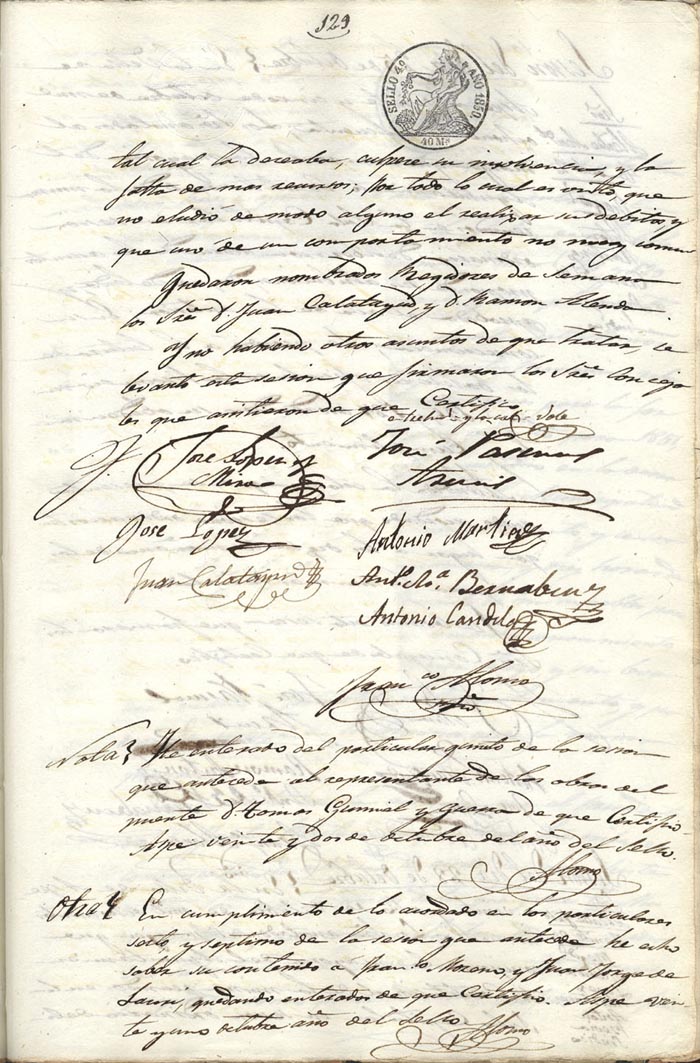 129
SELLO 4º AÑO 1850.
40 Ms
tal cual la deceaba, culpese su insolvencia, y la
falta de mas recursos; por todo lo cual es visto, que
no eludió de modo alguno el realizar sus debitos, y
que usó de un comportamiento no muy comun
Quedaron nombrados Regidores de Semana
los Sres D. Juan Calatayud, y D. Ramon
Y no habiendo otros asuntos de que tratar, se
levantó esta sesion que firmaron los Sres Conceja
les que asistieron de que Certifico
vale
José Lopez
Mira
José Pascual
Asnar
José Lopez
Antonio Martinez
Juan Calatayud
Anto. Ma. Bernabeu
Antonio Candela
Franco Alonso
Srio
Nota
He enterado del particular quinto de la sesion
que antecede al representante de los obras del
puente D. Tomas y Guerra de que Certifico
Aspe veinte y dos de octubre del año del Sello.
Alonso
Otra
En cumplimiento de lo acordado en los particulares
sesto, y septimo de la sesion que antecede he echo
saber su contenido á Franco. Moreno, y Juan Jorge de
quedando enterados de que Certifico. Aspe vein
te y uno octubre año del Sello.
Alonso